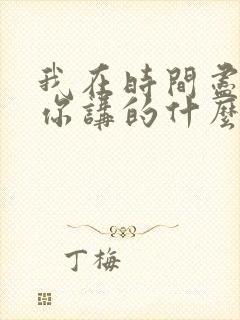 我在時間盡
你講的什麼
丁梅